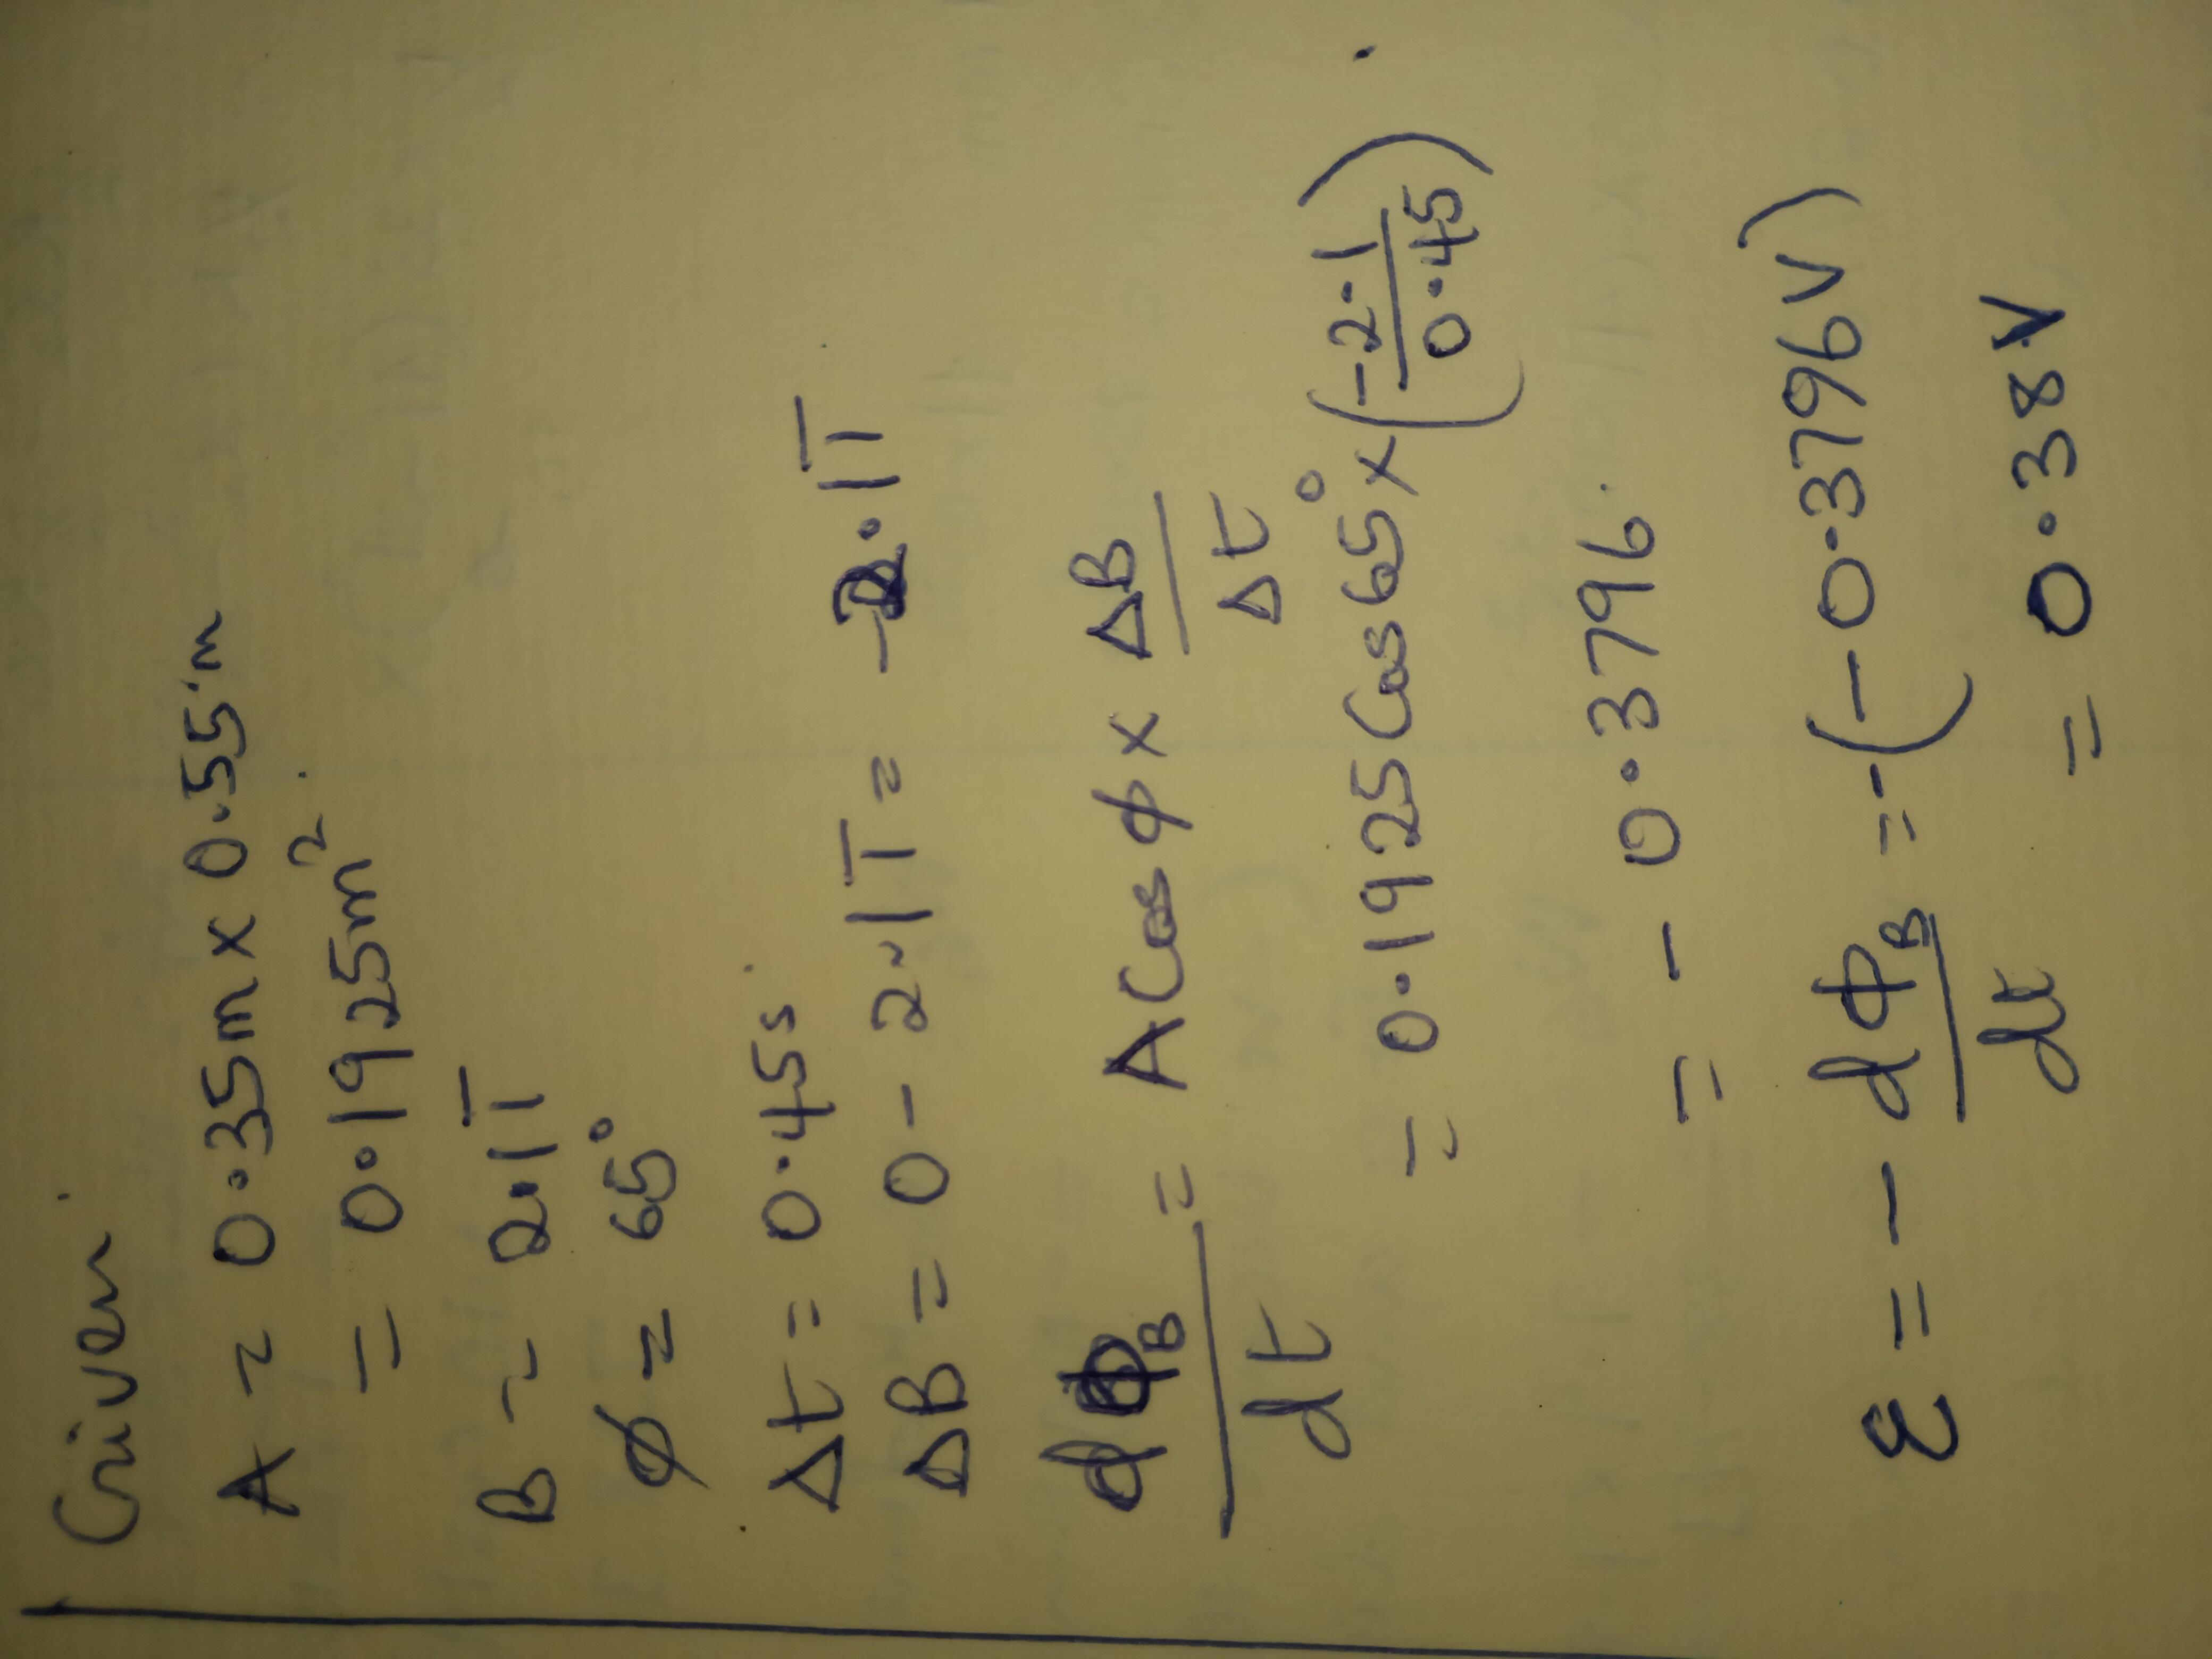 Given
A = 0.35m x 0.55m
= 0.1925m²
B = 2.1T
ϕ = 65°
Δt = 0.45s
ΔB = 0 - 2.1T = -2.1T
dΦ_B/dt = A Cos ϕ x ΔB/Δt
= 0.1925 Cos 65° x (-2.1/0.45)
= - 0.3796
ε = - dΦ_B/dt = -(-0.3796V)
= 0.38V